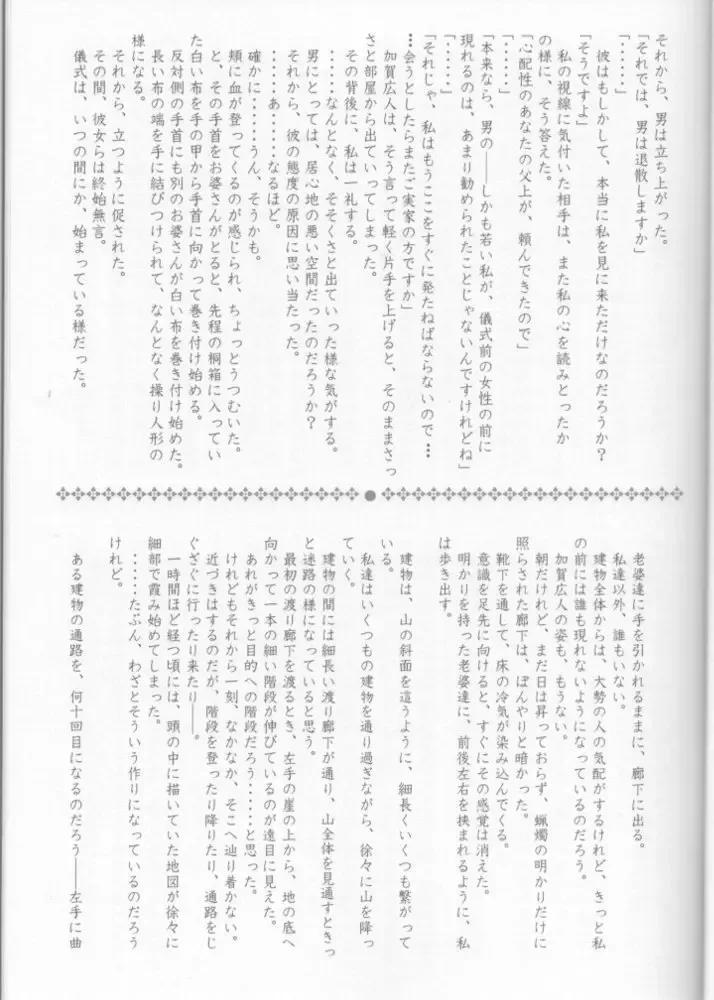 それから、男は立ち上がった。
「それでは、男は退散しますか」
「‥‥‥」
彼はもしかして、本当に私を見に来ただけなのだろうか？
「そうですよ」
私の視線に気付いた相手は、また私の心を読みとったか
の様に、そう答えた。
「心配性のあなたの父上が、頼んできたので」
「‥‥‥」
「本来なら、男の――しかも若い私が、儀式前の女性の前に
現れるのは、あまり勧められたことじゃないんですけれどね」
「‥‥‥」
「それじゃ、私はもうここをすぐに発たねばならないので…
…会うとしたらまたご実家の方ですか」
加賀広人は、そう言って軽く片手を上げると、そのままさっ
さと部屋から出ていってしまった。
その背後に、私は一礼する。
‥‥‥なんとなく、そそくさと出ていった様な気がする。
男にとっては、居心地の悪い空間だったのだろうか？
それから、彼の態度の原因に思い当たった。
‥‥‥あ‥‥‥なるほど。
確かに‥‥‥うん、そうかも。
頬に血が登ってくるのが感じられ、ちょっとうつむいた。
と、その手首をお婆さんがとると、先程の桐箱に入ってい
た白い布を手の甲から手首に向かって巻き付け始める。
反対側の手首にも別のお婆さんが白い布を巻き付け始めた。
長い布の端を手に結びつけられて、なんとなく操り人形の
様になる。
それから、立つように促された。
その間、彼女らは終始無言。
儀式は、いつの間にか、始まっている様だった。
老婆達に手を引かれるままに、廊下に出る。
私達以外、誰もいない。
建物全体からは、大勢の人の気配がするけれど、きっと私
の前には誰も現れないようになっているのだろう。
加賀広人の姿も、もうない。
朝だけれど、まだ日は昇っておらず、蝋燭の明かりだけに
照らされた廊下は、ぼんやりと暗かった。
靴下を通して、床の冷気が染み込んでくる。
意識を足先に向けると、すぐにその感覚は消えた。
明かりを持った老婆達に、前後左右を挟まれるように、私
は歩き出す。
建物は、山の斜面を這うように、細長くいくつも繋がって
いる。
私達はいくつもの建物を通り過ぎながら、徐々に山を降っ
ていく。
建物の間には細長い渡り廊下が通り、山全体を見通すときっ
と迷路の様になっていると思う。
最初の渡り廊下を渡るとき、左手の崖の上から、地の底へ
向かって一本の細い階段が伸びているのが遠目に見えた。
あれがきっと目的への階段だろう‥‥‥と思った。
けれどもそれから一刻、なかなか、そこへ辿り着かない。
近づきはするのだが、階段を登ったり降りたり、通路をじ
ぐざぐに行ったり来たり――。
一時間ほど経つ頃には、頭の中に描いていた地図が徐々に
細部で霞み始めてしまった。
‥‥‥たぶん、わざとそういう作りになっているのだろう
けれど。
ある建物の通路を、何十回目になるのだろう――左手に曲